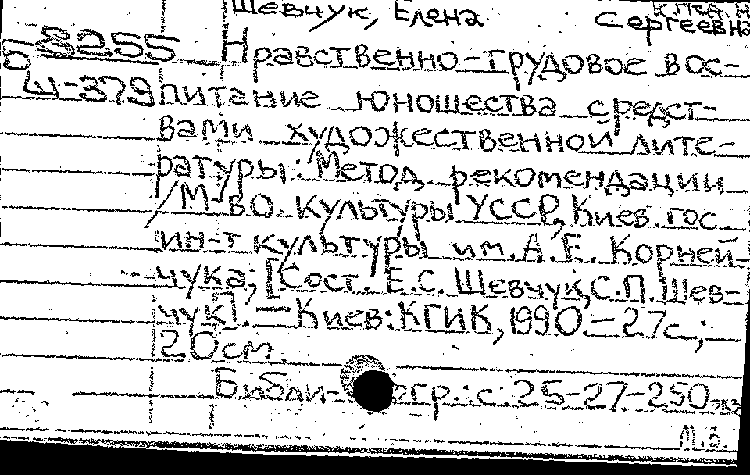 Шевчук, Елена Сергеевна
Б 8255 Нравственно-трудовое вос-
Ш-379 питание юношества средст-
вами художественной лите-
ратуры: Метод. рекомендации
/М-во культуры УССР, Киев. гос.
ин-т культуры им. А. Е. Корней-
чука; [Сост. Е.С. Шевчук, С.П. Шев-
чук]. — Киев: КГИК, 1990 — 27с.;
20см.
Библиогр.: с. 25-27 — 250 экз.